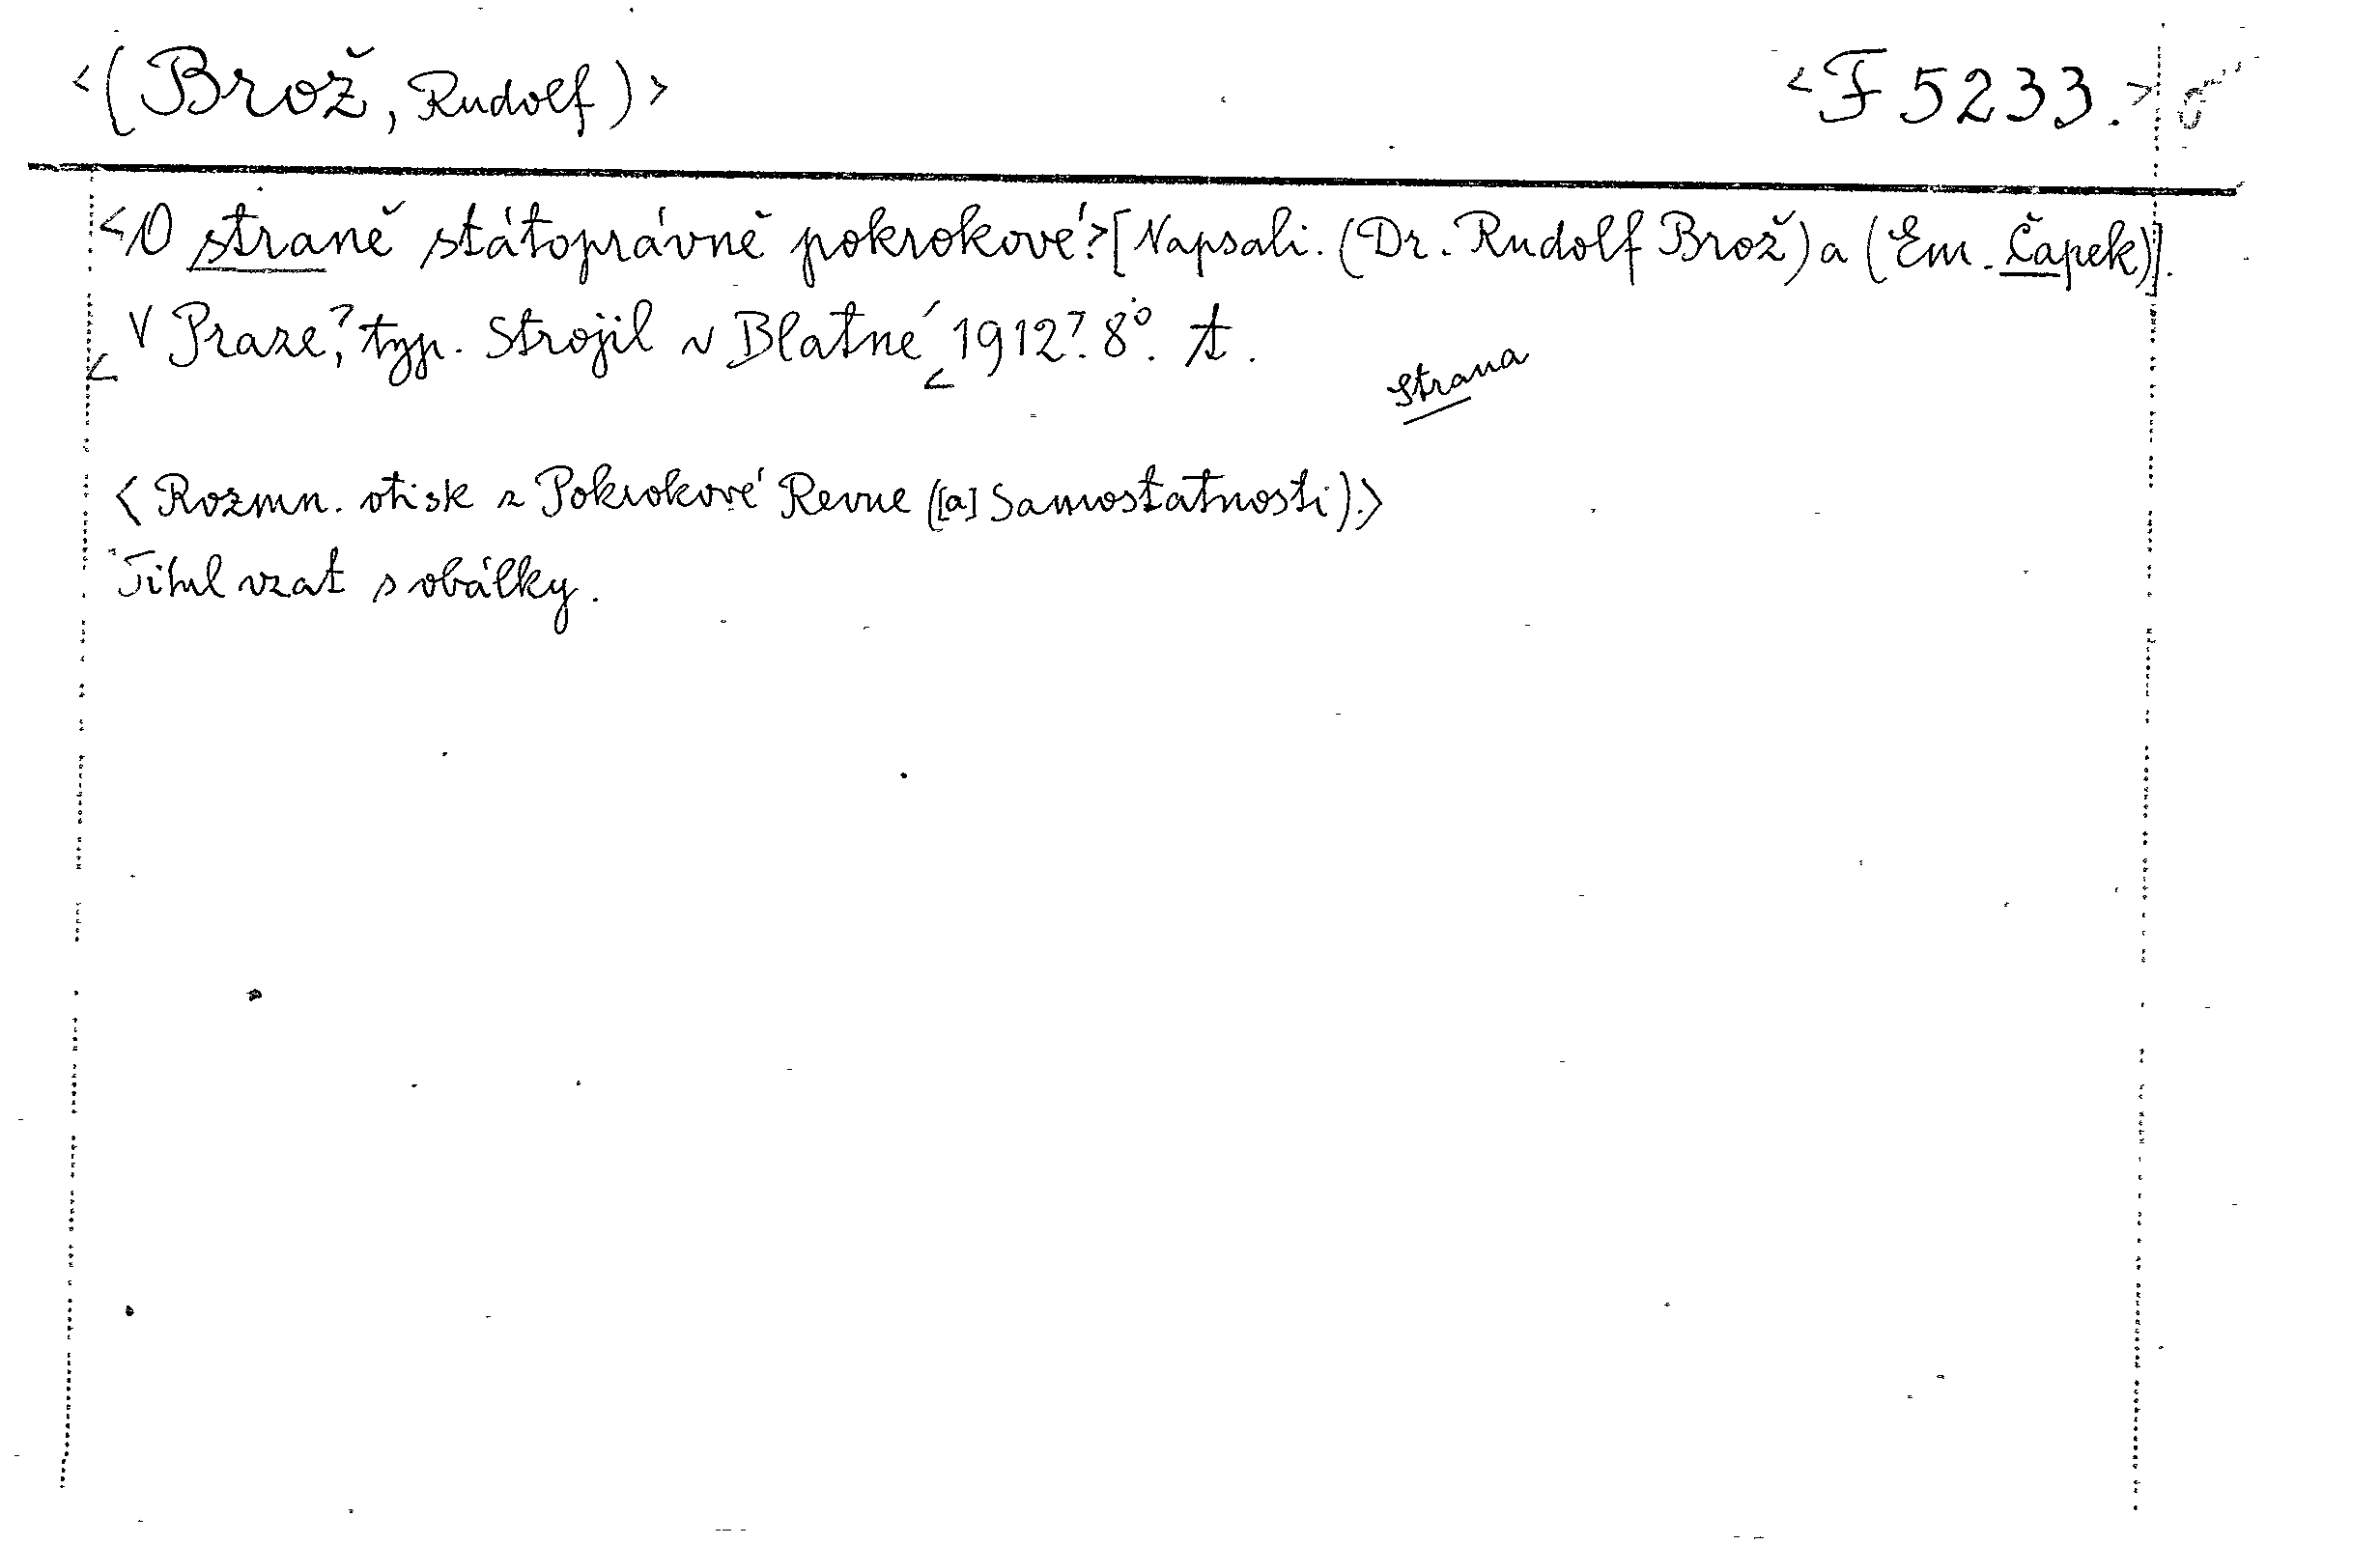 <(Brož, Rudolf)> <F 5233.>
<O straně státoprávně pokrokové.>[Napsali. (Dr. Rudolf Brož) a (Em. Čapek)].
<V Praze,> typ. Strojil v Blatné <1912>. 8°. t.
Strana
<Rozmn. otisk z Pokrokové Revue ([a] Samostatnosti).>
Titul vzat s obálky.